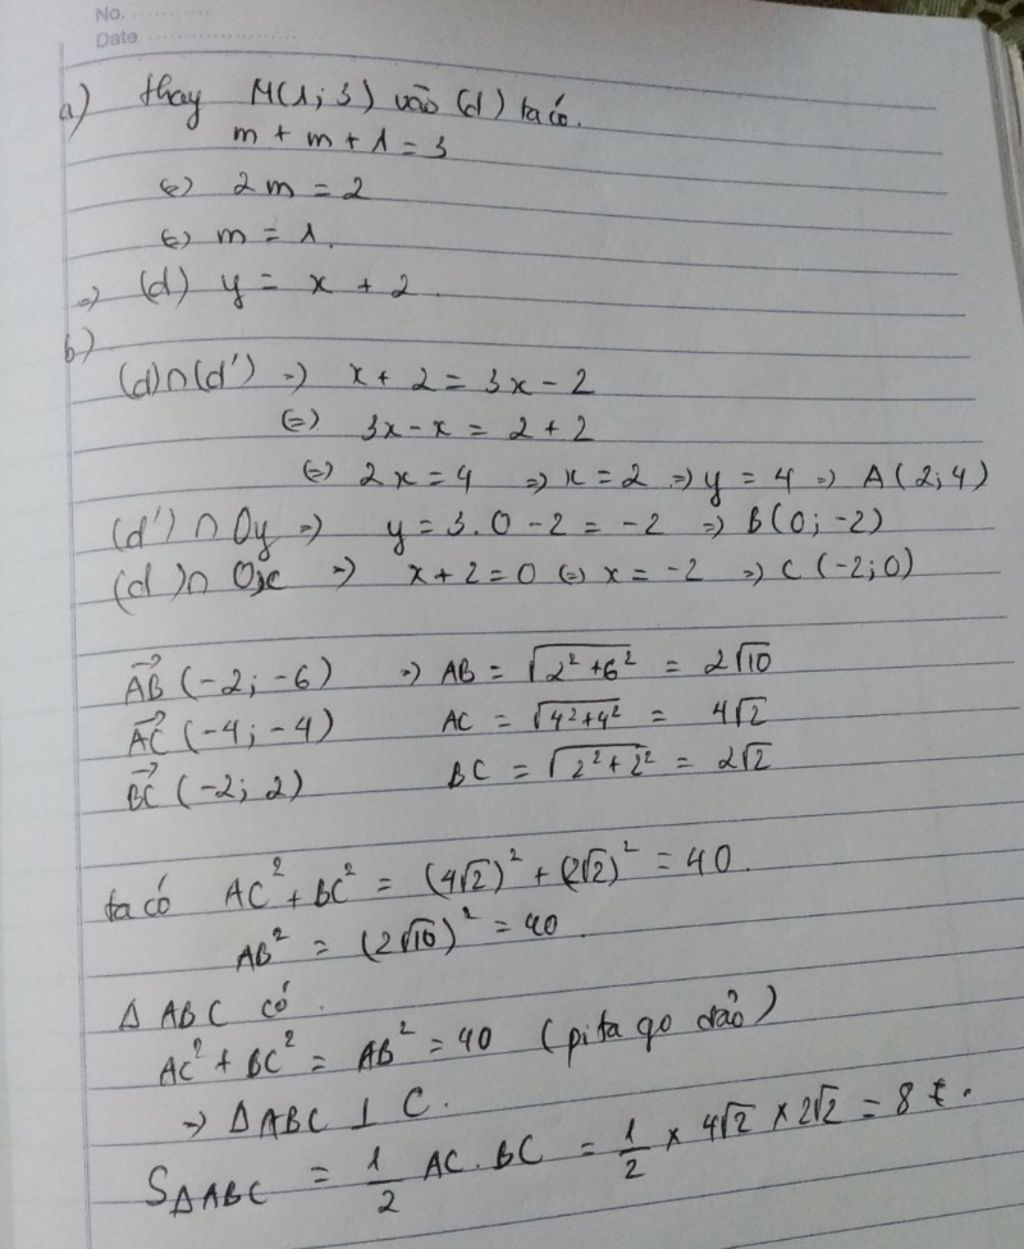 No. ............
Date ............
a) thay M(1; 3) vào (d) ta có.
m + m + 1 = 3
(=) 2m = 2
(=) m = 1.
=> (d) y = x + 2.
b)
(d)∩(d') => x + 2 = 3x - 2
(=) 3x - x = 2 + 2
(=) 2x = 4 => x = 2 => y = 4 => A(2; 4)
(d') ∩ Oy => y = 3.0 - 2 = -2 => B(0; -2)
(d)∩ Ox => x + 2 = 0 (=) x = -2 => C(-2; 0)
AB→ (-2; -6) => AB = √(2² + 6²) = 2√10
AC→ (-4; -4) AC = √(4² + 4²) = 4√2
BC→ (-2; 2) BC = √(2² + 2²) = 2√2
ta có AC² + BC² = (4√2)² + (2√2)² = 40.
AB² = (2√10)² = 40.
Δ ABC có.
AC² + BC² = AB² = 40 (pitago đảo)
=> ΔABC ⊥ C.
SΔABC = 1/2 AC.BC = 1/2 × 4√2 × 2√2 = 8